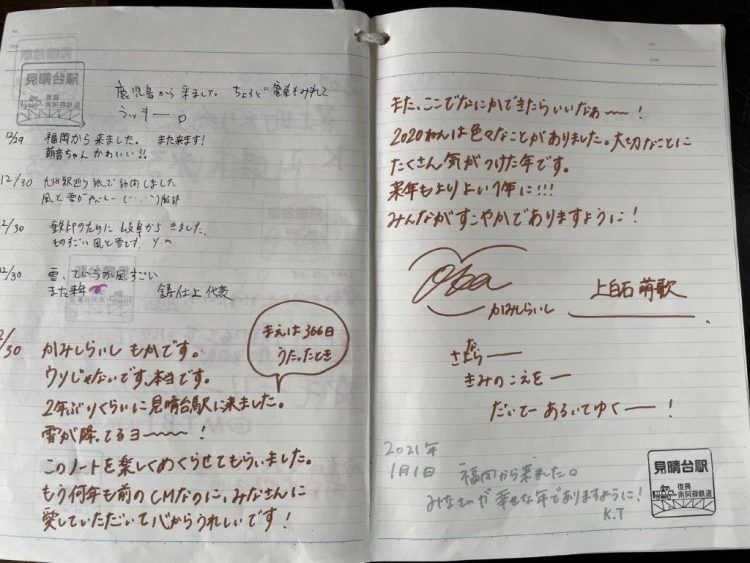 見晴台駅
復興
南阿蘇鉄道
鹿児島から来ました。ちょうど電車もみれて
ラッキー。
12/29 福岡から来ました。また来ます!
萌音ちゃん かわいい!!
12/30 九州駅巡り旅で訪問しました
風と雪が
12/30 鉄印のために から きました。
ものすごい風と雪です
12/30 雪、ていうか風すごい
また来年 代表
12/30 かみしらいし もかです。
ウソじゃないです、本当です。
まえは366日
うたったとき
2年ぶりくらいに見晴台駅に来ました。
雪が降ってるヨ〜〜〜!
このノートを楽しくめくらせてもらいました。
もう何年も前のCMなのに、みなさんに
愛していただいて心からうれしいです!
また、ここでなにかできたらいいなぁ〜〜!
2020ねんは色々なことがありました。大切なことに
たくさん気がつけた年です。
来年もよりよい1年に!!!
みんながすこやかでありますように!
かみしらいし
上白石 萌歌
さよなら──
きみのこえを──
だいてーあるいてゆく──!
2021年
1月1日 福岡から来ました。
みなさんが幸せな年でありますように!
K.T
見晴台駅
復興
南阿蘇鉄道